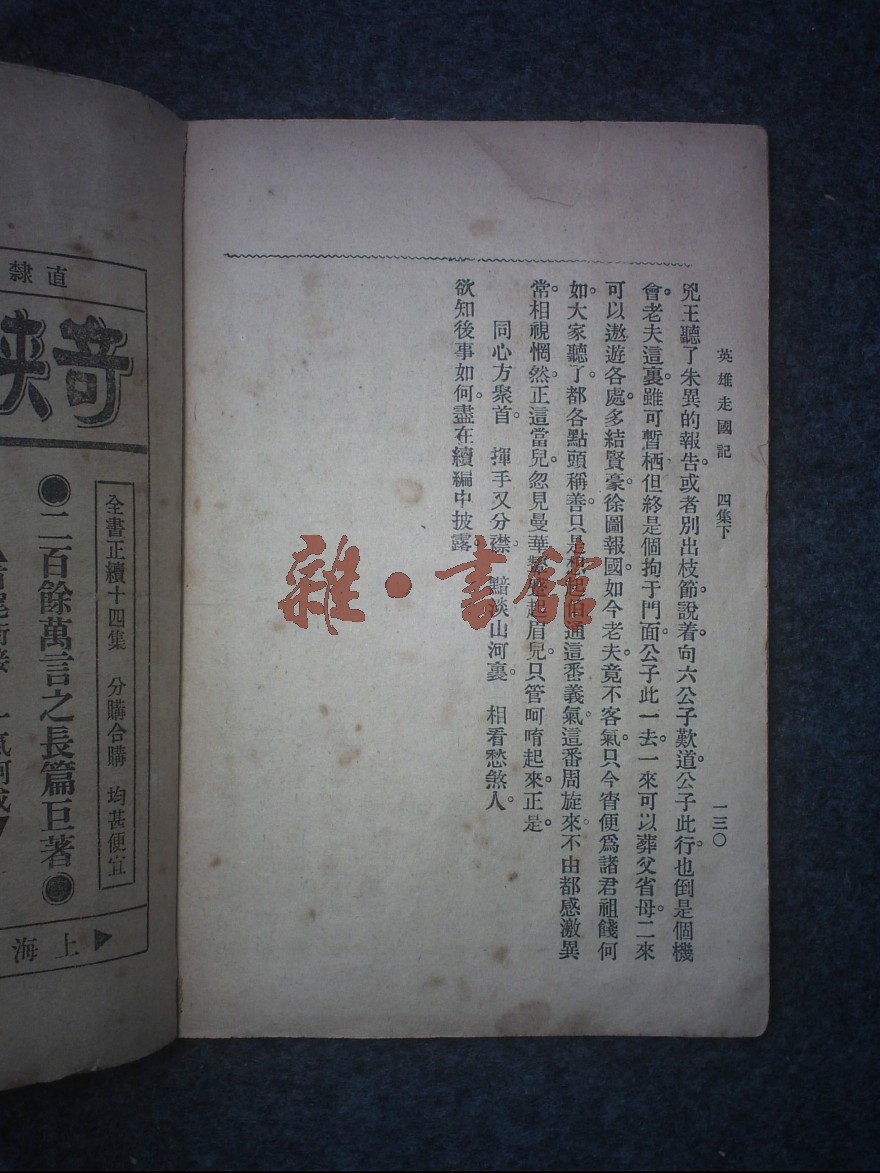 英雄走國記　四集下　一三〇
兇王聽了朱異的報告。或者別出枝節。說着。向六公子歎道。公子此行。也倒是個機
會。老夫這裏。雖可暫栖。但終是個拘于門面。公子此一去。一來可以葬父省母。二來
可以遨遊各處。多結賢豪。徐圖報國。如今老夫竟不客氣。只今宵便爲諸君祖餞何
如。大家聽了。都各點頭稱善。只是想起伯通這番義氣。這番周旋來。不由都感激異
常。相視惘然。正這當兒。忽見曼華起眉兒。只管呵唷起來。正是。
同心方聚首。　揮手又分襟。　黯淡山河裏。　相看愁煞人。
欲知後事如何。盡在續編中披露。
雜·書館
直隸
奇俠
●二百餘萬言之長篇巨著●
全書正續十四集　分購合購　均甚便宜
上海